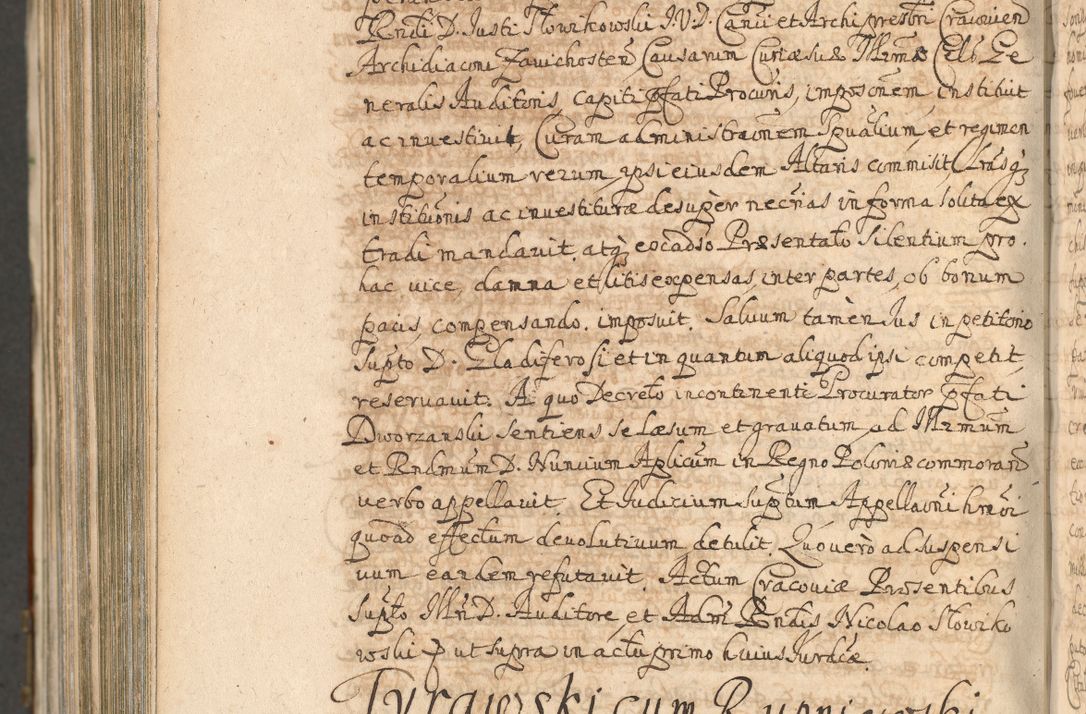 Rndi D. Justi Słowikowski J.V.D. Canci et Archipresbri Cracovien
Archidiaconi Zavichosten, Causarum Curiæ suæ Illrmæ Cels. Ge
neralis Auditoris, capiti pfati Procuris, imposonem, instituit
ac investivit, Curam administraonem Spualium, et regimen
temporalium rerum, ipsi eiusdem Altaris commisit, Lrasq3
institutionis ac investituræ desuper necrias in forma solita ex
tradi mandavit, atq3 Præsentato silentium pro
hac vice, damna et litis expensas, inter partes, ob bonum
pacis compensando, imposuit. Salvum tamen Ius in petitorio
supto D. Gladifero si et in quantum aliquod ipsi competit,
reservavit. A quo Decreto incontinenti Procurator pfati
Dworzanski sentiens se læsum et gravatum, ad Illrmum
et Rndmum D. Nuncium Aplicum in Regno Poloniæ commoran
verbo appellavit. Et Iudicium suptum Appellaoni
quoad effectum devolutivum detulit. Quo vero ad suspensi
vum eandem refutavit. Actum Cracoviæ Præsentibus
supto Illri D. Auditore, et Adm Rndis Nicolao Słowiko
wski ut supra in actu primo huius Iurdicæ.
Tyrawski cum Rupniewski